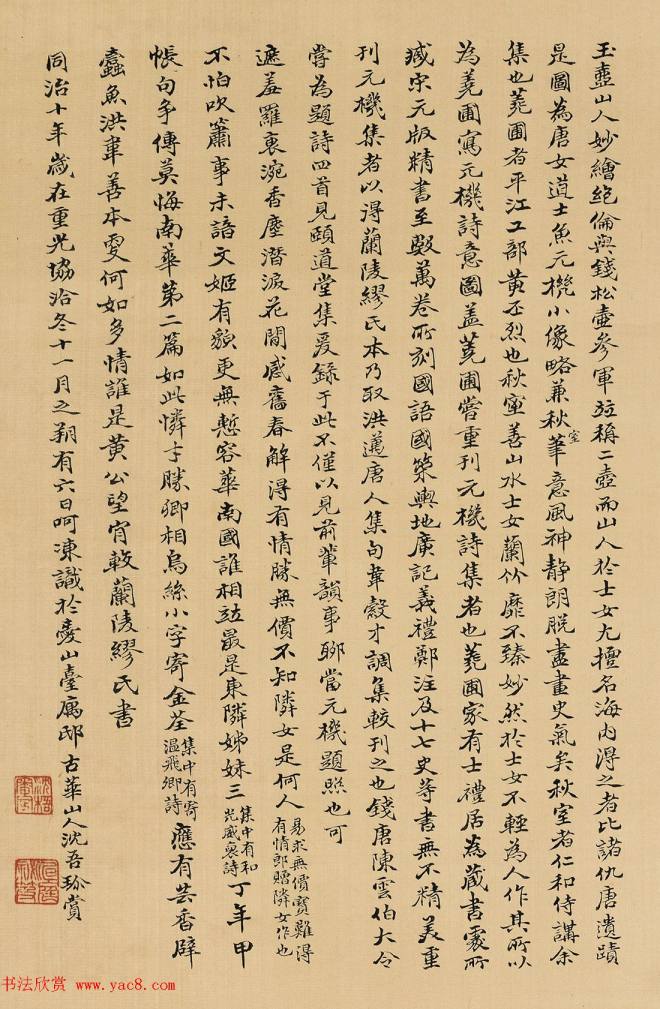 玉壺山人妙繪絕倫與錢松壺參軍竝稱二壺而山人於士女尤擅名海內得之者比諸仇唐遺蹟
是圖為唐女道士魚元機小像略兼秋室筆意風神靜朗脫盡畫史氣矣秋室者仁和侍講余
集也蕘圃者平江工部黃丕烈也秋室善山水士女蘭竹靡不臻妙然於士女不輕為人作其所以
為蕘圃寫元機詩意圖蓋蕘圃嘗重刊元機詩集者也蕘圃家有士禮居為藏書處所
臧宋元版精書至數萬卷所刻國語國策輿地廣記義禮鄭注及十七史等書無不精美重
刊元機集者以得蘭陵繆氏本乃取洪邁唐人集句韋縠才調集較刊之也錢唐陳雲伯大令
嘗為題詩四首見頤道堂集爰錄于此不僅以見前輩韻事聊當元機題照也可
遮羞羅裛涴香塵潛淚花間感舊春解得有情勝無價不知隣女是何人易求無價寶難得有情郎贈隣女作也
不怕吹簫事未諳文姬有貌更無慙容華南國誰相竝最是東隣姊妹三集中有和光威裛詩丁年甲
帳句爭傳莫悔南華第二篇如此憐才勝卿相烏絲小字寄金荃集中有寄溫飛卿詩應有芸香辟
蠹魚洪韋善本更何如多情誰是黃公望肯較蘭陵繆氏書
同治十年歲在重光協洽冬十一月之朔有六日呵凍識於夌山臺廡邸古華山人沈吾珎賞
书法欣赏 www.yac8.com